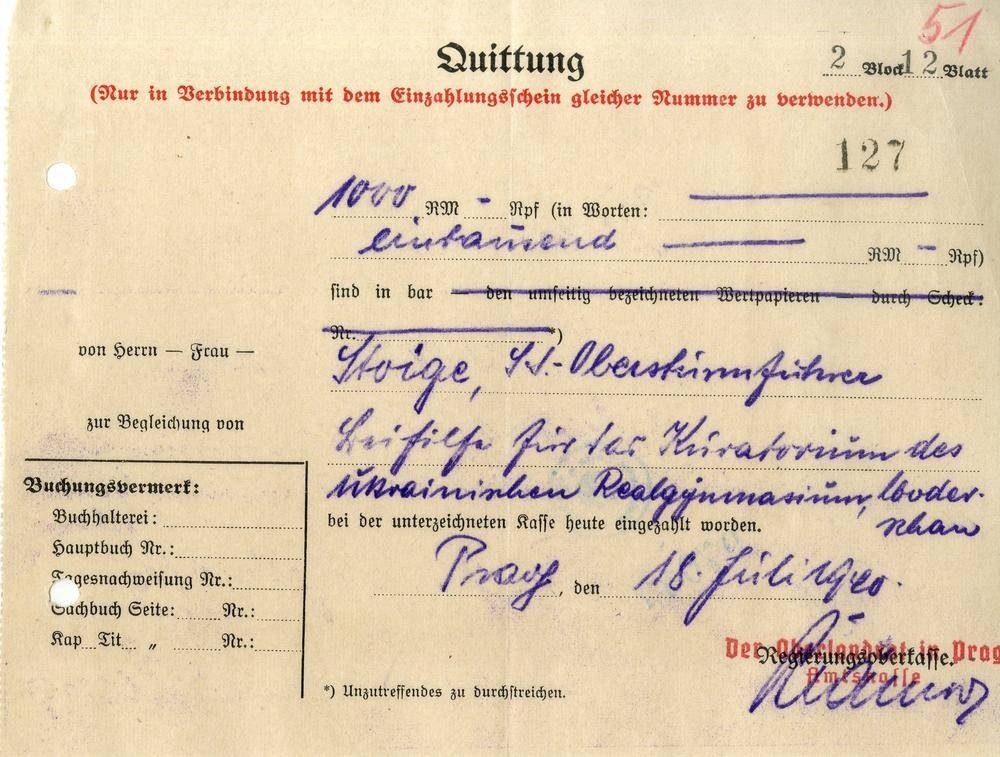 51
Quittung
2 Block 12 Blatt
(Nur in Verbindung mit dem Einzahlungsschein gleicher Nummer zu verwenden.)
127
1000 RM - Rpf (in Worten:
eintausend RM - Rpf)
sind in bar — den umseitig bezeichneten Wertpapieren — durch Scheck:
Nr. *)
von Herrn — Frau — Stoige, SS.-Obersturmführer
zur Begleichung von Beihilfe für das Kuratorium des
ukrainischen Realgymnasium, Moder-
schan
bei der unterzeichneten Kasse heute eingezahlt worden.
Prag, den 18. Juli 1940.
Buchungsvermerk:
Buchhalterei:
Hauptbuch Nr.:
Tagesnachweisung Nr.:
Sachbuch Seite: Nr.:
Kap Tit „ Nr.:
Der Oberlandrat in Prag
Regierungsoberkasse.
Amtskasse
*) Unzutreffendes zu durchstreichen.